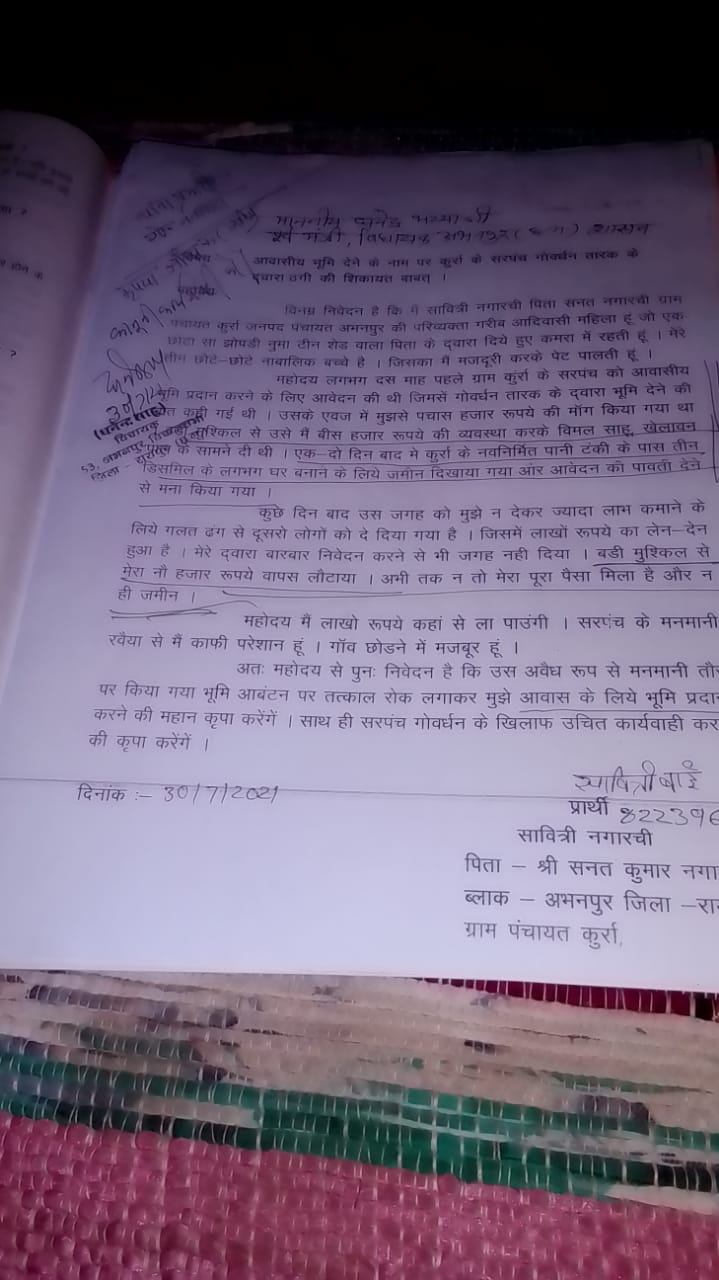 माननीय धनेन्द्र भय्या जी
पूर्व मंत्री, विधायक अभनपुर (छ.ग.) शासन
आवासीय भूमि देने के नाम पर कुर्रा के सरपंच गोवर्धन तारक के
द्वारा ठगी की शिकायत बाबत् ।
विनम्र निवेदन है कि मै सावित्री नगारची पिता सनत नगारची ग्राम
पंचायत कुर्रा जनपद पंचायत अभनपुर की परित्यक्ता गरीब आदिवासी महिला हूं जो एक
छोटा सा झोपडी नुमा टीन शेड वाला पिता के द्वारा दिये हुए कमरा में रहती हूं । मेरे
तीन छोटे-छोटे नाबालिक बच्चे है । जिसका मैं मजदूरी करके पेट पालती हूं ।
महोदय लगभग दस माह पहले ग्राम कुर्रा के सरपंच को आवासीय
भूमि प्रदान करने के लिए आवेदन की थी जिमसें गोवर्धन तारक के द्वारा भूमि देने की
कही गई थी । उसके एवज में मुझसे पचास हजार रूपये की मॉग किया गया था
मुश्किल से उसे मैं बीस हजार रूपये की व्यवस्था करके विमल साहू, खेलावन
के सामने दी थी । एक-दो दिन बाद मे कुर्रा के नवनिर्मित पानी टंकी के पास तीन
डिसमिल के लगभग घर बनाने के लिये जमीन दिखाया गया और आवेदन की पावती देने
से मना किया गया ।
कुछे दिन बाद उस जगह को मुझे न देकर ज्यादा लाभ कमाने के
लिये गलत ढंग से दूसरो लोगों को दे दिया गया है । जिसमें लाखों रूपये का लेन-देन
हुआ है । मेरे द्वारा बारबार निवेदन करने से भी जगह नही दिया । बडी मुश्किल से
मेरा नौ हजार रूपये वापस लौटाया । अभी तक न तो मेरा पूरा पैसा मिला है और न
ही जमीन ।
महोदय मैं लाखो रूपये कहां से ला पाउंगी । सरपंच के मनमानी
रवैया से मैं काफी परेशान हूं । गॉव छोडने में मजबूर हूं ।
अतः महोदय से पुनः निवेदन है कि उस अवैध रूप से मनमानी तौर
पर किया गया भूमि आबंटन पर तत्काल रोक लगाकर मुझे आवास के लिये भूमि प्रदान
करने की महान कृपा करेंगें । साथ ही सरपंच गोवर्धन के खिलाफ उचित कार्यवाही कर
की कृपा करेंगें ।
कानूनी कार्यवाही
30/7/21
(धनेन्द्र साहू)
विधायक
53, अभनपुर
जिला - रायपुर
दिनांक :- 30/7/2021
सावित्री बाई
प्रार्थी 822396
सावित्री नगारची
पिता – श्री सनत कुमार नगा
ब्लाक – अभनपुर जिला –रा
ग्राम पंचायत कुर्रा,